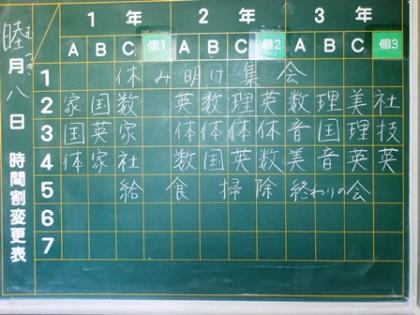 1年 2年 3年
A B C 個1 A B C 個2 A B C 個3
1 休み明け集会
2 家 国 数 英 数 理 英 数 理 美 社
3 国 英 家 体 体 体 体 音 国 理 技
4 体 家 社 数 国 英 数 美 音 英 英
5 給食 掃除 終わりの会
6
7
睦月八日 時間割変更表
むつき